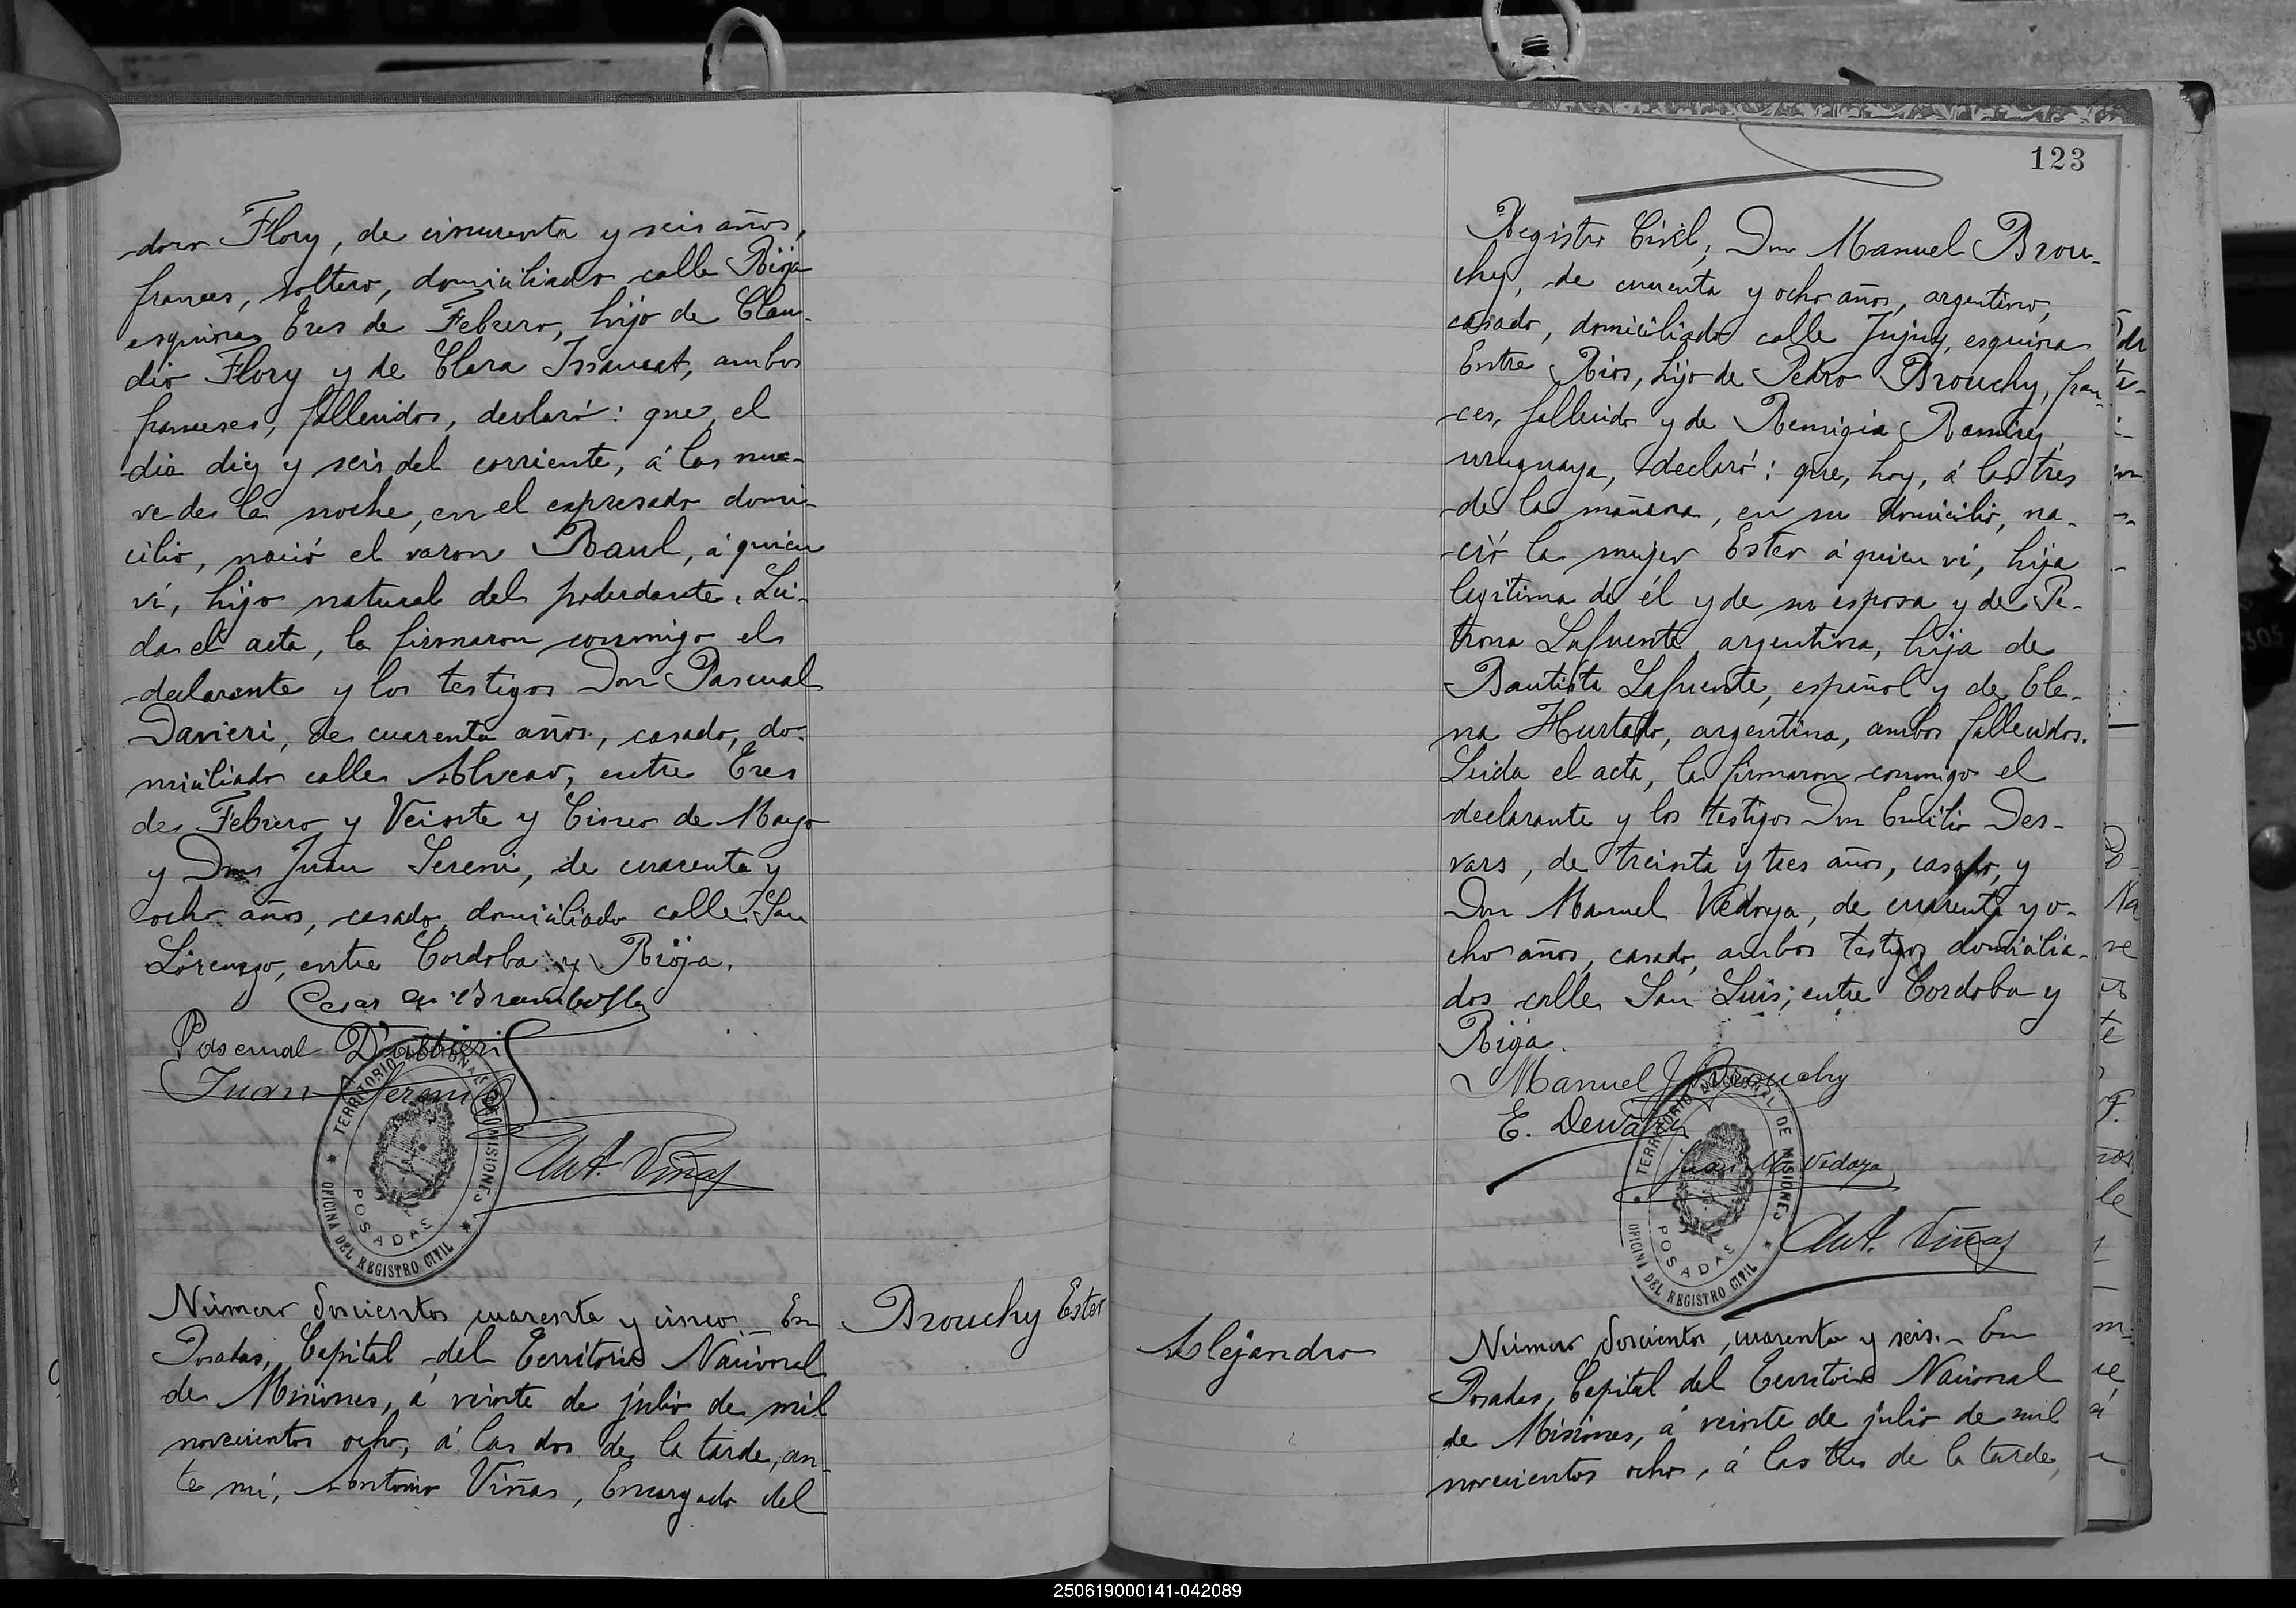 doro Flory, de cincuenta y seis años,
frances, soltero, domiciliado calle Rioja
esquina Tres de Febrero, hijo de Clau-
dio Flory y de Clara Issaurat, ambos
franceses, fallecidos, declaró: que, el
dia diez y seis del corriente, á las nue-
ve de la noche, en el expresado domi-
cilio, nació el varon Raul, á quien
ví, hijo natural del poderdante. Lei-
da el acta, la firmaron conmigo el
declarante y los testigos Don Pascual
Davieri, de cuarenta años, casado, do-
miciliado calle Alvear, entre Tres
de Febrero y Veinte y Cinco de Mayo
y Don Juan Sereni, de cuarenta y
ocho años, casado, domiciliado calle San
Lorenzo, entre Cordoba y Rioja.
Pascual
Juan Sereni
Ant. Viñas
TERRITORIO NACIONAL DE MISIONES
POSADAS
OFICINA DEL REGISTRO CIVIL
Número doscientos cuarenta y cinco. En
Posadas, Capital del Territorio Nacional
de Misiones, á veinte de julio de mil
novecientos ocho, á las dos de la tarde, an-
te mí, Antonio Viñas, Encargado del
Brouchy Ester
123
Registro Civil, Don Manuel Brou-
chy, de cuarenta y ocho años, argentino,
casado, domiciliado calle Jujuy, esquina
Entre Rios, hijo de Pedro Brouchy, fran-
ces, fallecido y de Remigia Ramirez,
uruguaya, declaró: que, hoy, á las tres
de la mañana, en su domicilio, na-
ció la mujer Ester á quien ví, hija
legitima de él y de su esposa y de Pe-
trona Lafuente, argentina, hija de
Bautista Lafuente, español y de Ele-
na Hurtado, argentina, ambos fallecidos.
Leida el acta, la firmaron conmigo el
declarante y los testigos Don Emilio Des-
vars, de treinta y tres años, casado, y
Don Manuel Vedoya, de cuarenta y o-
cho años, casado, ambos testigos domicilia-
dos calle San Luis, entre Cordoba y
Rioja.
Manuel J. Brouchy
E. Desvars
Juan M. Vedoya
Ant. Viñas
TERRITORIO NACIONAL DE MISIONES
POSADAS
OFICINA DEL REGISTRO CIVIL
Alejandro
Número doscientos cuarenta y seis. En
Posadas, Capital del Territorio Nacional
de Misiones, á veinte de julio de mil
novecientos ocho, á las tres de la tarde,
250619000141-042089